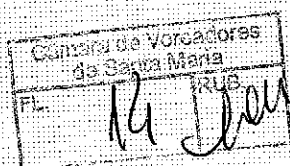 Câmara de Vereadores
de Santa Maria
FL. RUB.
14